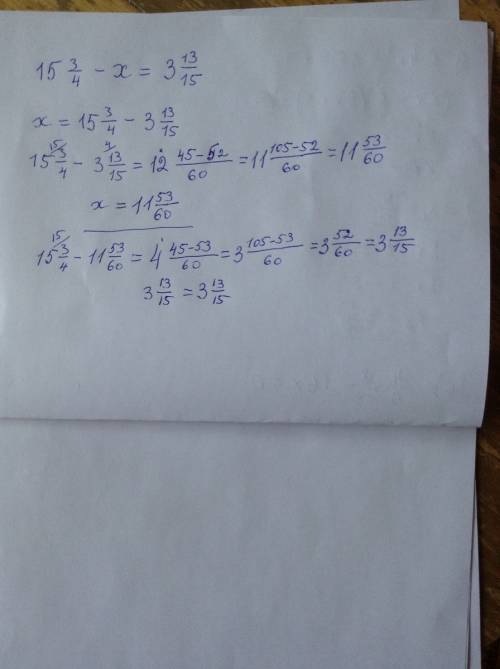 15 3/4 - x = 3 13/15
x = 15 3/4 - 3 13/15
15 3/4 (15) - 3 13/15 (4) = 12 (45-52)/60 = 11 (105-52)/60 = 11 53/60
x = 11 53/60
15 3/4 (15) - 11 53/60 = 4 (45-53)/60 = 3 (105-53)/60 = 3 52/60 = 3 13/15
3 13/15 = 3 13/15